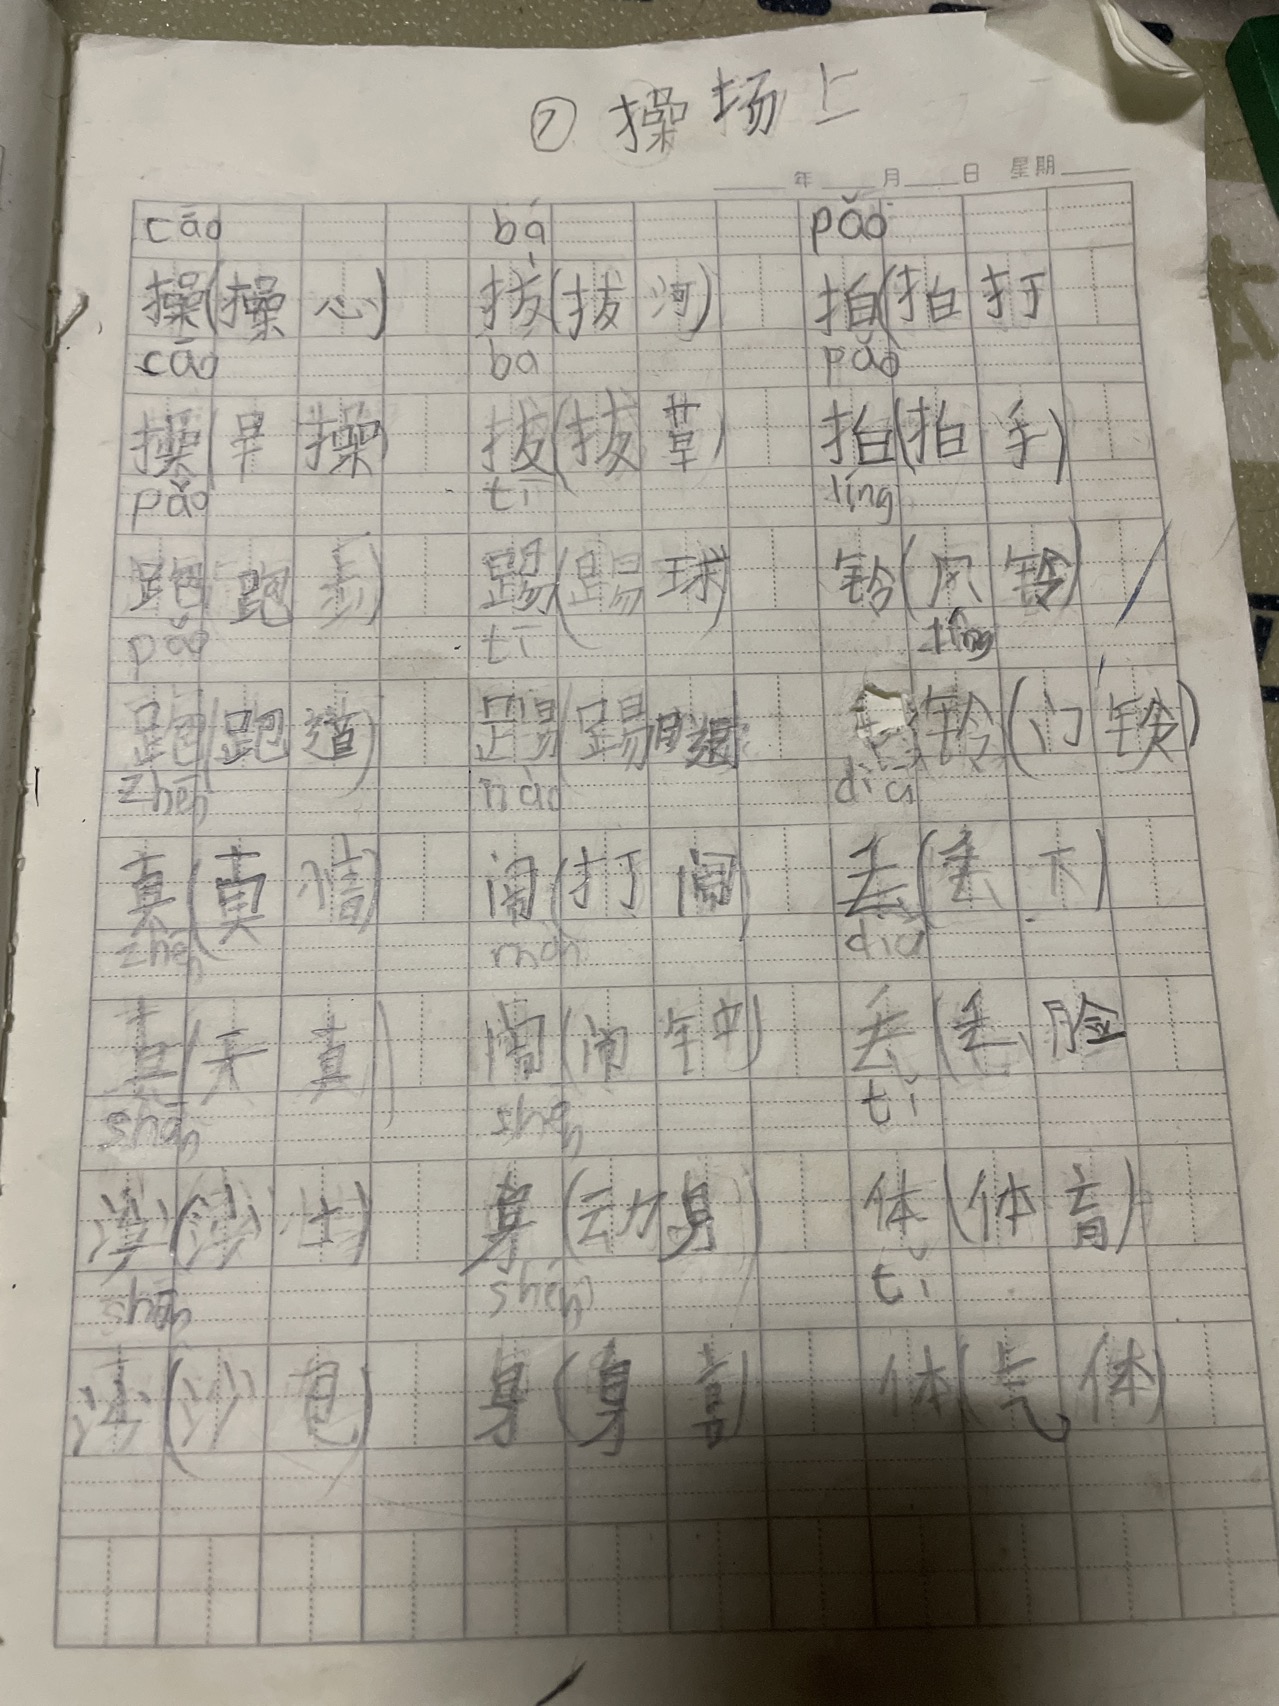 ⑦ 操场上
年 月 日 星期
cāo bá pǎo
操(操心) 拔(拔河) 拍(拍打
cāo bá pǎo
操(早操 拔(拔草) 拍(拍手)
pǎo tī líng
跑 跑步) 踢(踢球) 铃(风铃)
pǎo tī líng
跑(跑道) 踢(踢腿 铃(门铃)
zhēn nào diū
真(真情) 闹(打闹) 丢(丢下)
zhēn nào diū
真(天真) 闹(闹钟) 丢(丢脸
shā shēn tǐ
沙(沙土) 身(动身) 体(体育)
shā shēn tǐ
沙(沙包) 身(身高) 体(气体)